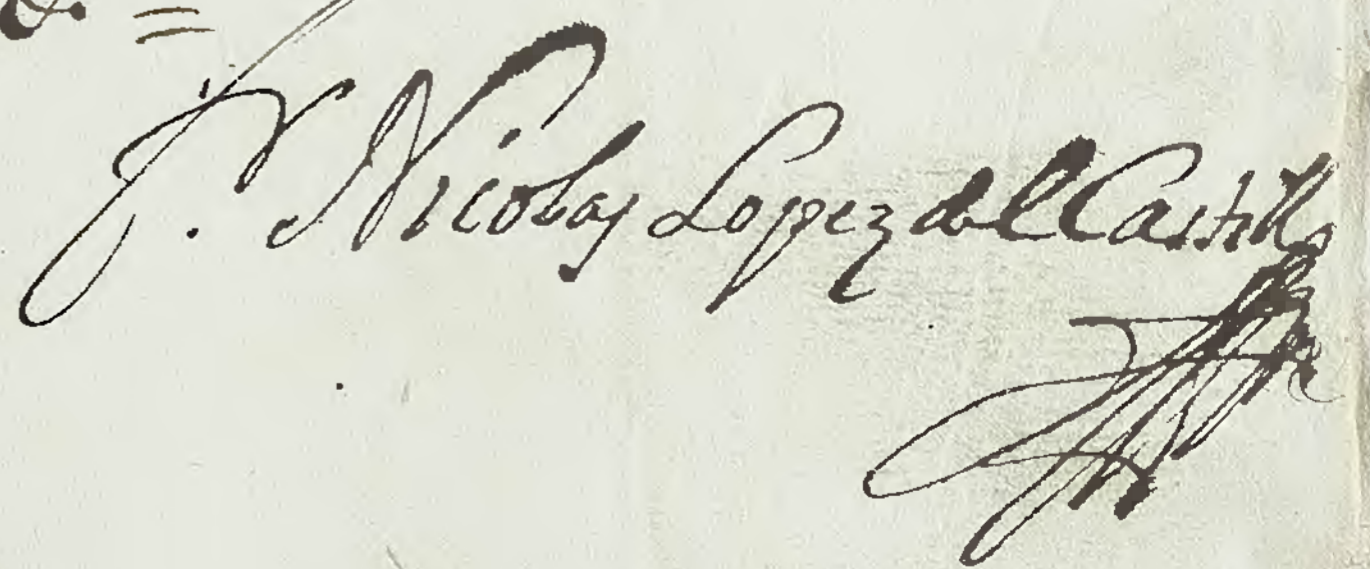 Fr. Nicolas Lopez del Castillo